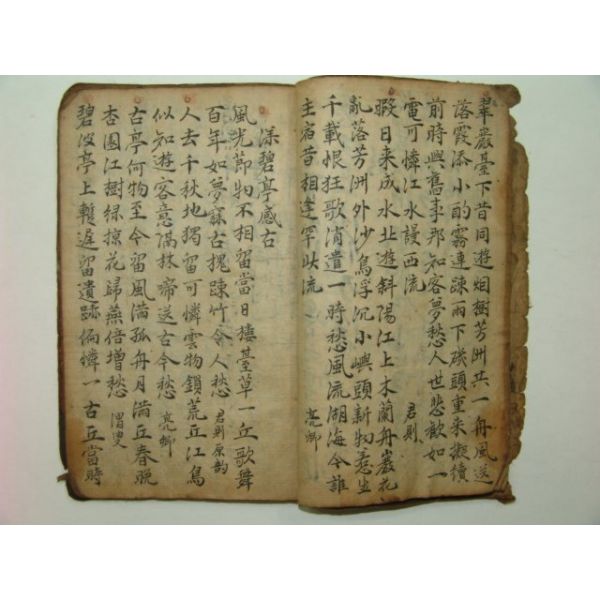 翠巖臺下昔同遊烟樹芳洲共一舟風送
落霞添小酌霧連踈雨下磯頭重来擬續
前時興舊事那知客夢愁人世悲歡如一
電可憐江水謾西流
君則
暇日来成水北遊斜陽江上木蘭舟巖花
亂落芳洲外沙鳥浮沉小嶼頭新物惹生
千載恨狂歌消遣一時愁風流湖海今誰
主宿昔相逢罕此流
亮卿
漾碧亭感古
風光節物不相留當日樓臺草一丘歌舞
百年如夢寐古槐踈竹令人愁 君則原韵
人去千秋地獨留可憐雲物鎖荒丘江鳥
似知遊客意滿林啼送古今愁 亮卿
古亭何物至今留風滿孤舟月滿丘春晩
杏園江樹綠掠花歸燕倍增愁 渭叟
碧波亭上暫遲留遺跡偏憐一古丘當時